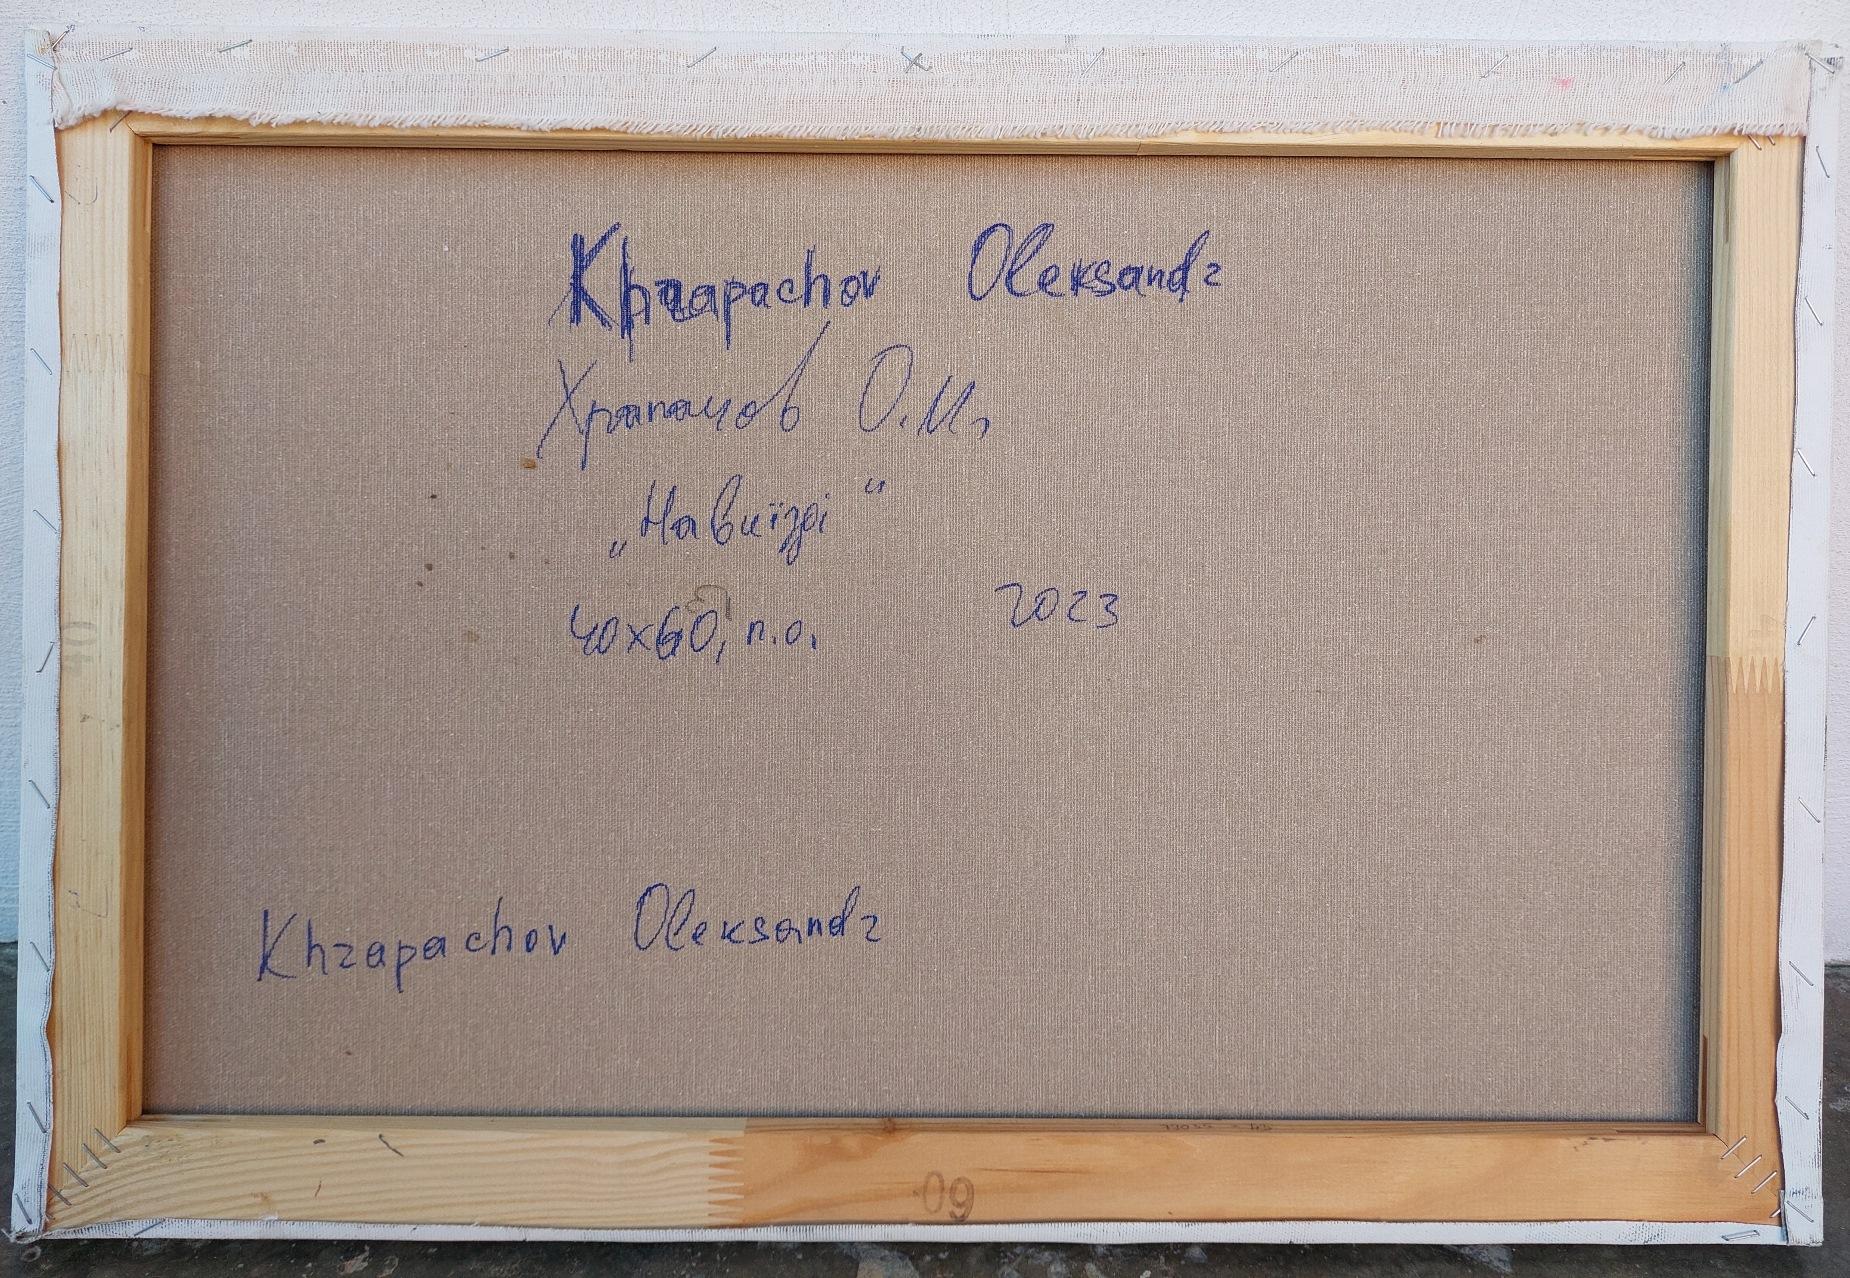 Khrapachov Oleksandr
Храпачов О.И.
„На виїзді“
40х60, п.о. 2023
Khrapachov Oleksandr
40
60